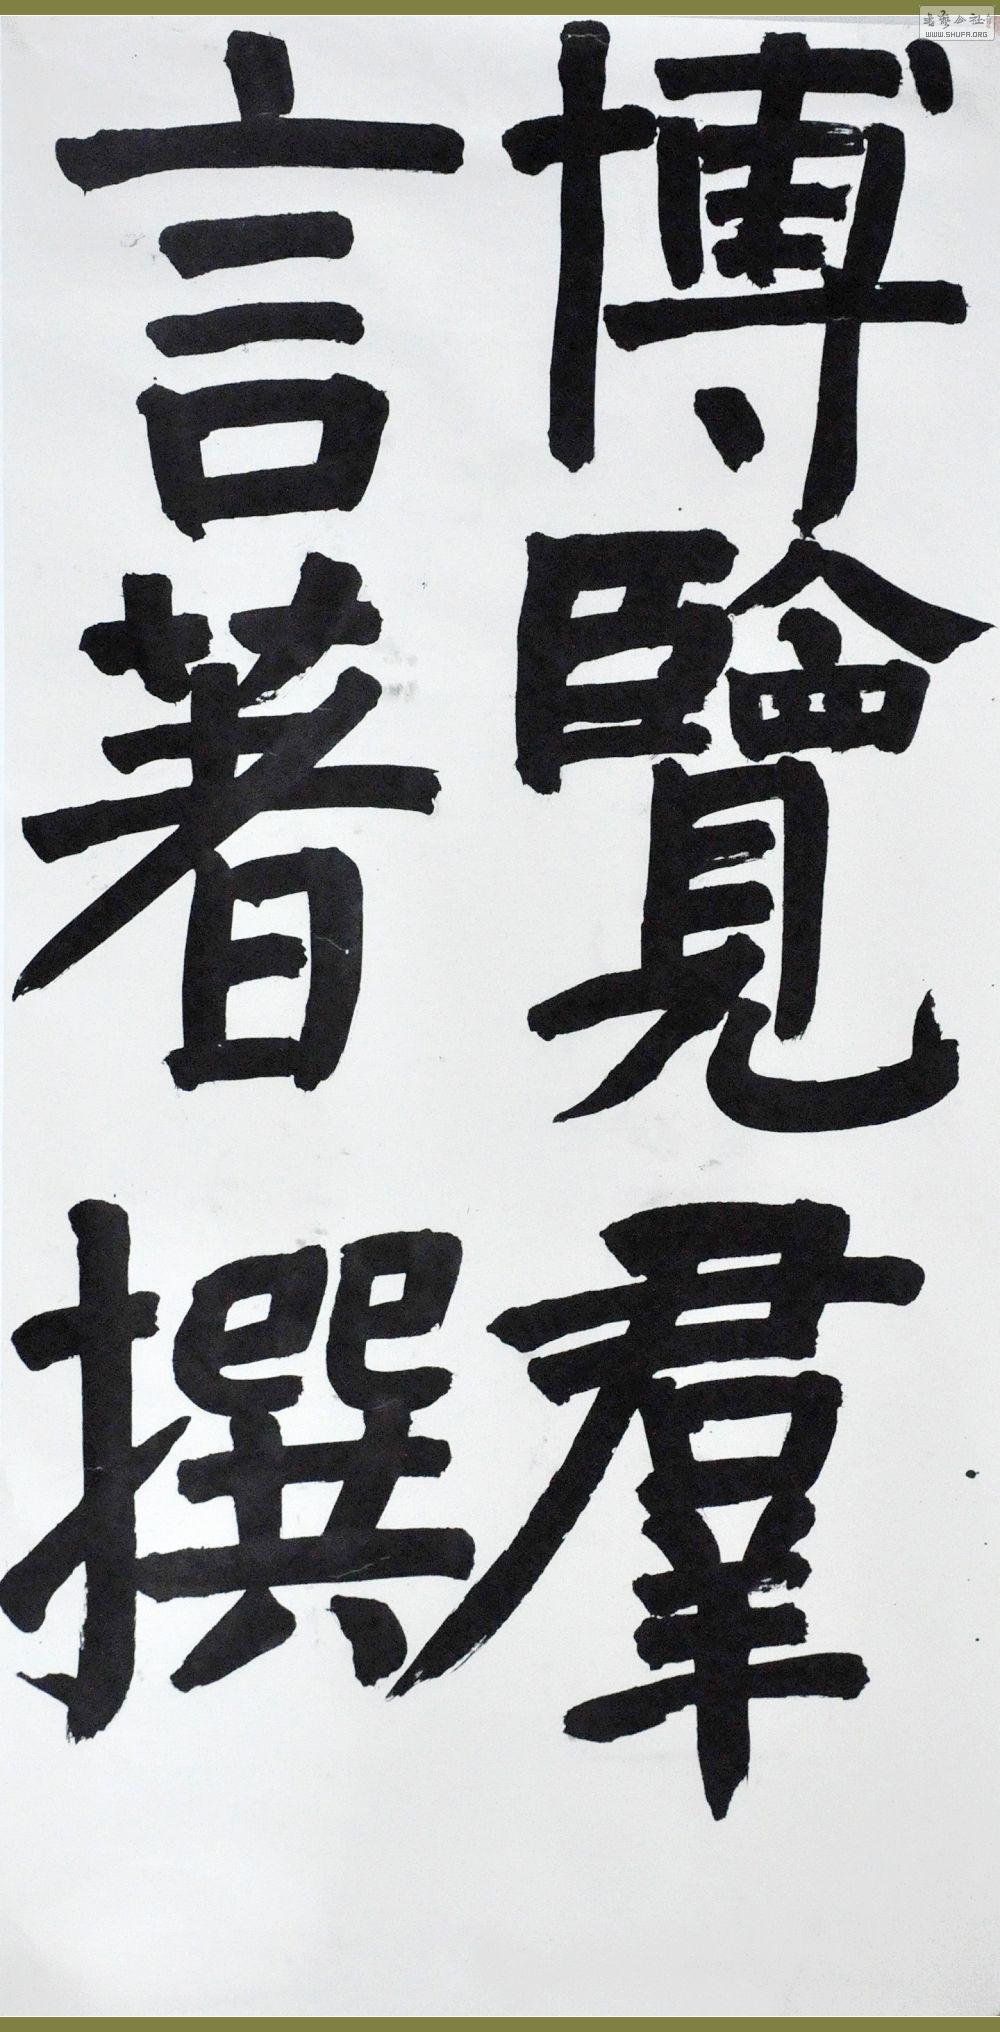 博覽羣
言著撰
書藝公社
WWW.SHUFA.ORG